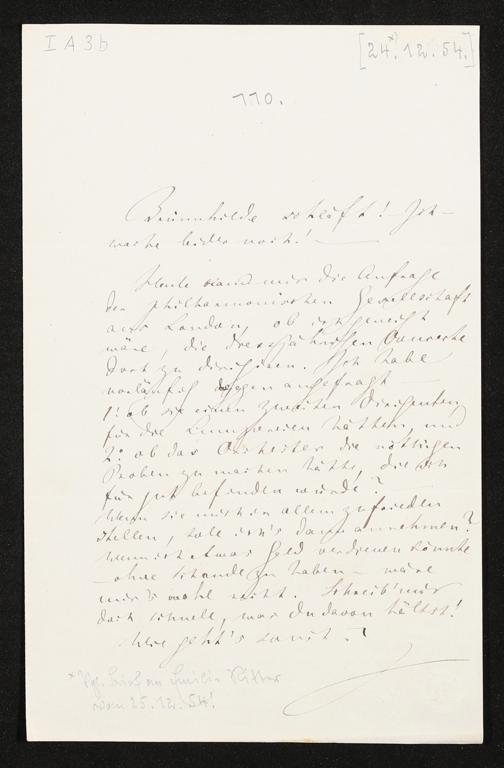 I A 3 b
[24.*) 12. 54.]
110.
Brünnhilde schläft! Ich –
wache leider noch! —
Heute kam mir die Anfrage
der philharmonischen Gesellschaft
aus London, ob ich geneigt
wäre, die diessjährigen Concerte
dort zu dirigiren. Ich habe
vorläufig dagegen angefragt –
1: ob sie einen zweiten Dirigenten
für die Lumpereien hätten, und
2: ob das Orchester die nöthigen
Proben zu machen hätte, die ich
für gut befinden würde? –
Wenn sie mich in allem zufrieden
stellen, soll ich's dann annehmen?
Wenn ich etwas Geld verdienen könnte
– ohne Schande zu haben – wäre
mir's wohl recht. Schreib' mir
doch schnell, was Du davon hältst!
Wie geht's sonst –?
* Vgl. Brief an Emilie Ritter
vom 25. 12. 54!